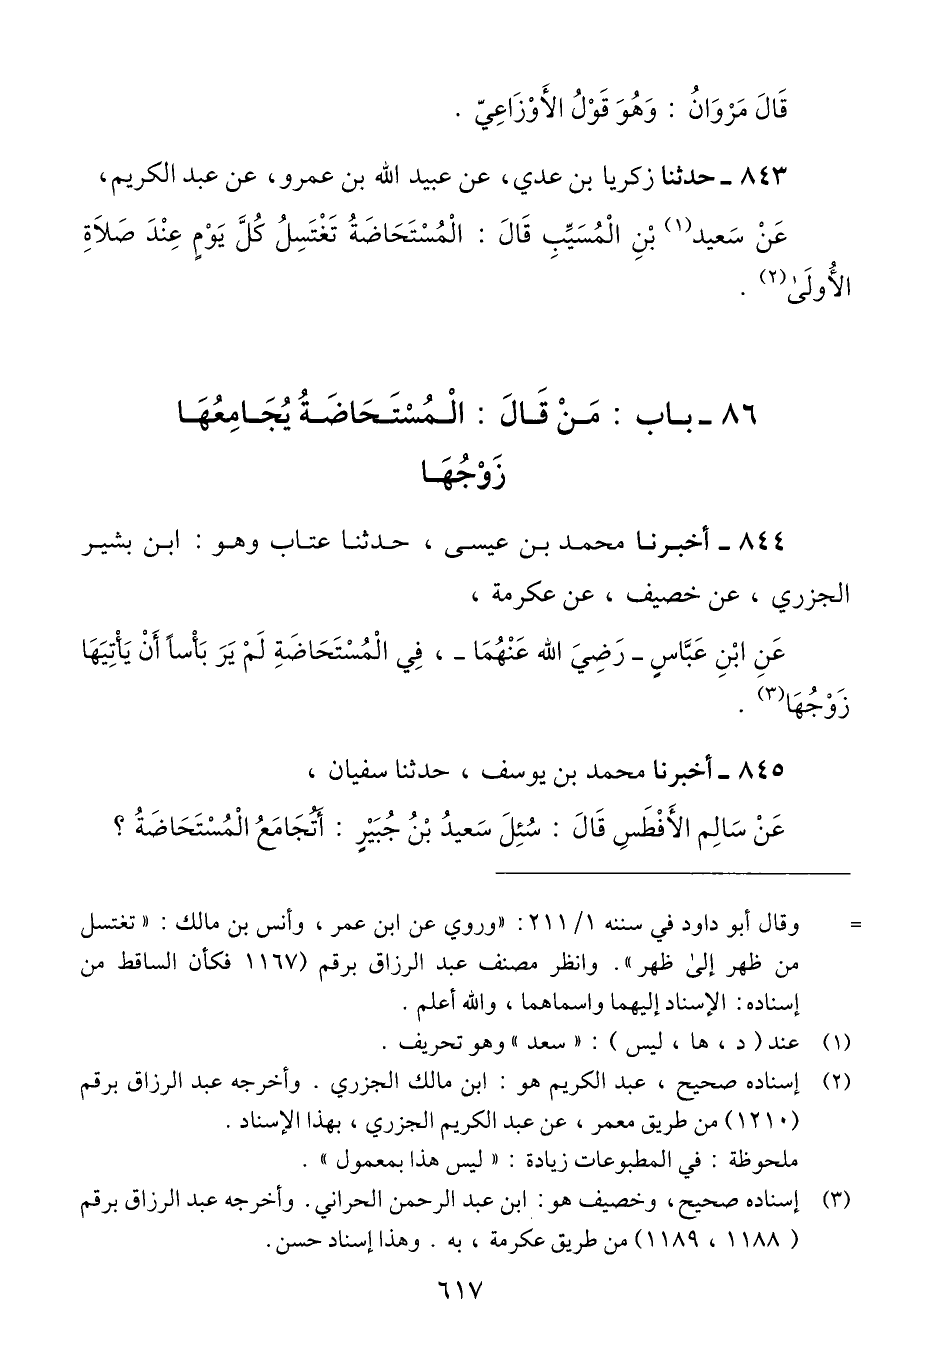 قَالَ مَرْوَانُ : وَهُوَ قَوْلُ الأَوْزَاعِيّ .
٨٤٣ ـ حدثنا زكريا بن عدي، عن عبيد الله بن عمرو، عن عبد الكريم،
عَنْ سَعيد(١) بْنِ الْمُسَيِّبِ قَالَ : الْمُسْتَحَاضَةُ تَغْتَسِلُ كُلَّ يَوْمٍ عِنْدَ صَلاَةِ
الأُولَىٰ(٢) .
٨٦ ـ بـاب : مَـنْ قَـالَ : الْـمُسْتَـحَاضَـةُ يُجَـامِعُهَـا
زَوْجُهَـا
٨٤٤ ـ أخبـرنـا محمـد بـن عيسـى ، حـدثنـا عتـاب وهـو : ابـن بشيـر
الجزري ، عن خصيف ، عن عكرمة ،
عَنِ ابْنِ عَبَّاسٍ ـ رَضِيَ الله عَنْهُمَا ـ ، فِي الْمُسْتَحَاضَةِ لَمْ يَرَ بَأْساً أَنْ يَأْتِيَهَا
زَوْجُهَا(٣) .
٨٤٥ ـ أخبرنا محمد بن يوسف ، حدثنا سفيان ،
عَنْ سَالِمِ الأَفْطَسِ قَالَ : سُئِلَ سَعيدُ بْنُ جُبَيْرٍ : أَتُجَامَعُ الْمُسْتَحَاضَةُ ؟
= وقال أبو داود في سننه ١/ ٢١١: «وروي عن ابن عمر ، وأنس بن مالك : « تغتسل
من ظهر إلىٰ ظهر ». وانظر مصنف عبد الرزاق برقم (١١٦٧ فكأن الساقط من
إسناده: الإسناد إليهما واسماهما ، والله أعلم .
(١) عند ( د ، ها ، ليس ) : « سعد » وهو تحريف .
(٢) إسناده صحيح ، عبد الكريم هو : ابن مالك الجزري . وأخرجه عبد الرزاق برقم
(١٢١٠) من طريق معمر ، عن عبد الكريم الجزري ، بهذا الإسناد .
ملحوظة : في المطبوعات زيادة : « ليس هذا بمعمول » .
(٣) إسناده صحيح، وخصيف هو: ابن عبد الرحمن الحراني. وأخرجه عبد الرزاق برقم
( ١١٨٨ ، ١١٨٩) من طريق عكرمة ، به . وهذا إسناد حسن.
٦١٧